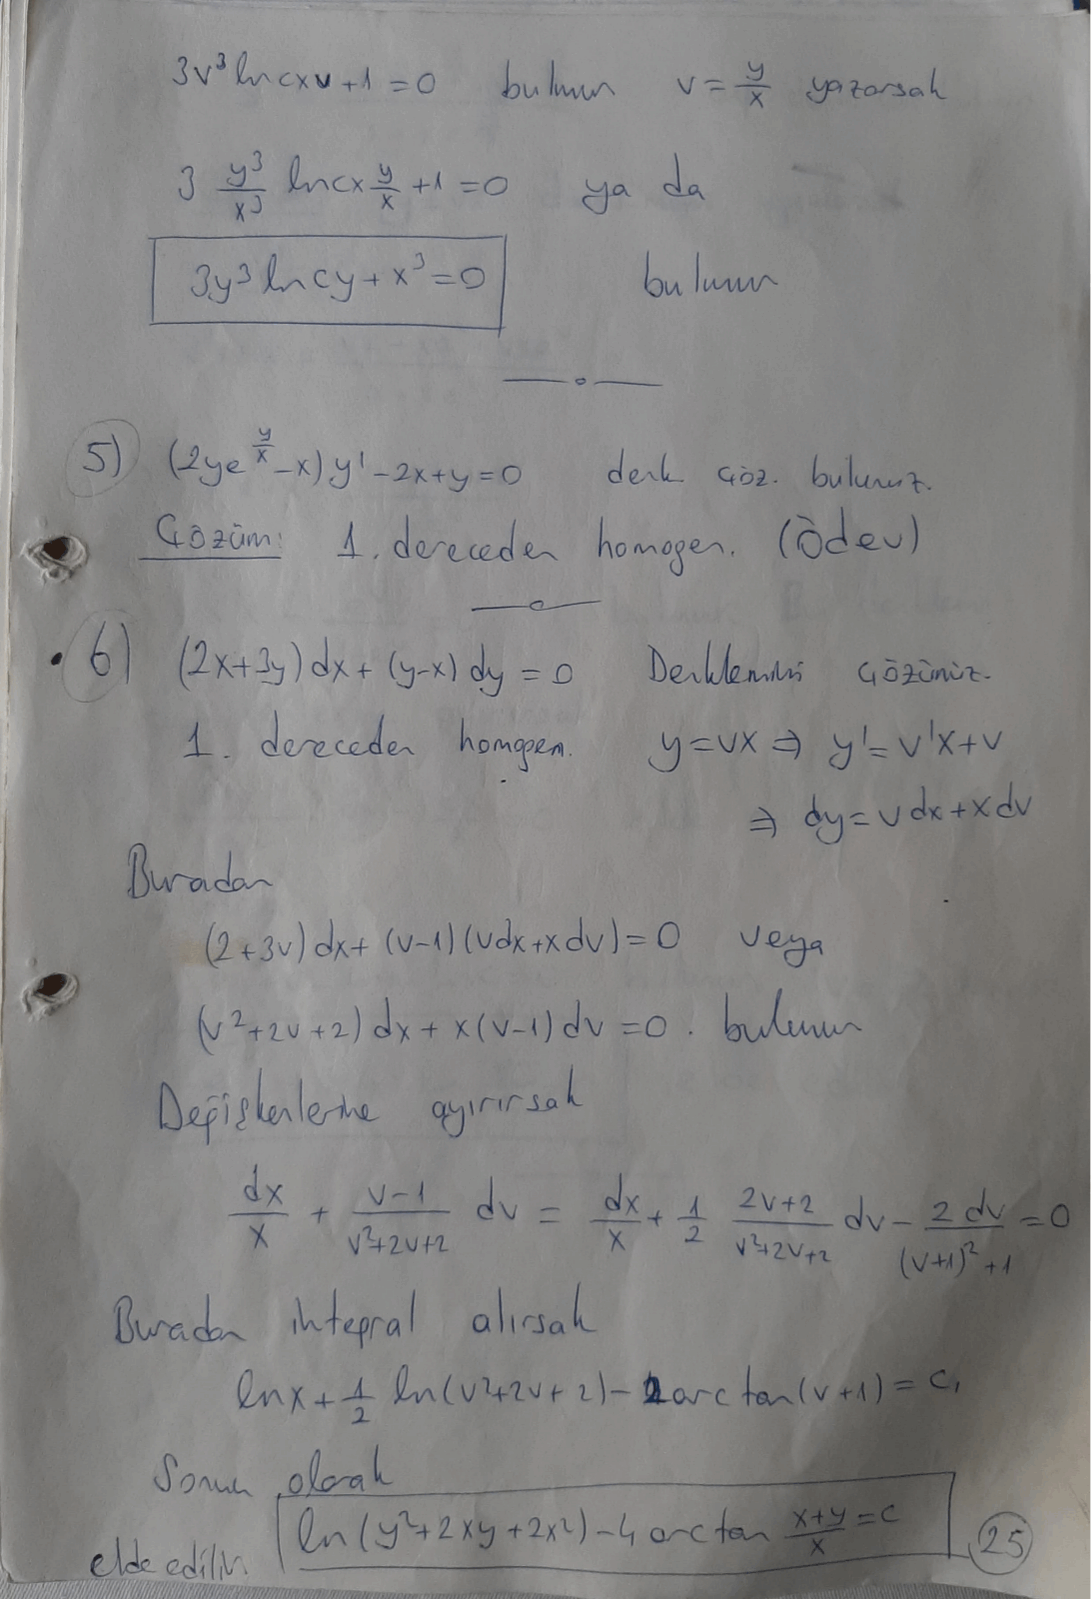 3v³ ln cxv + 1 = 0 bulunur v = y/x yazarsak
3 y³/x³ ln cx y/x + 1 = 0 ya da
3y³ ln cy + x³ = 0 bulunur
5) (2ye^(y/x) - x) y' - 2x + y = 0 denk çöz. bulunuz.
Çözüm: 1. dereceden homogen. (Ödev)
6) (2x+3y) dx + (y-x) dy = 0 Denklemini çözünüz.
1. dereceden homogen. y = vx ⇒ y' = v'x + v
⇒ dy = v dx + x dv
Buradan
(2+3v) dx + (v-1)(vdx + x dv) = 0 veya
(v²+2v+2) dx + x(v-1) dv = 0. bulunur
Değişkenlerine ayırırsak
dx/x + (v-1)/(v²+2v+2) dv = dx/x + 1/2 (2v+2)/(v²+2v+2) dv - 2 dv/((v+1)²+1) = 0
Buradan integral alırsak
ln x + 1/2 ln(v²+2v+2) - 2 arc tan(v+1) = c₁
Sonuç olarak
ln(y²+2xy+2x²) - 4 arc tan (x+y)/x = c
elde edilir.
25